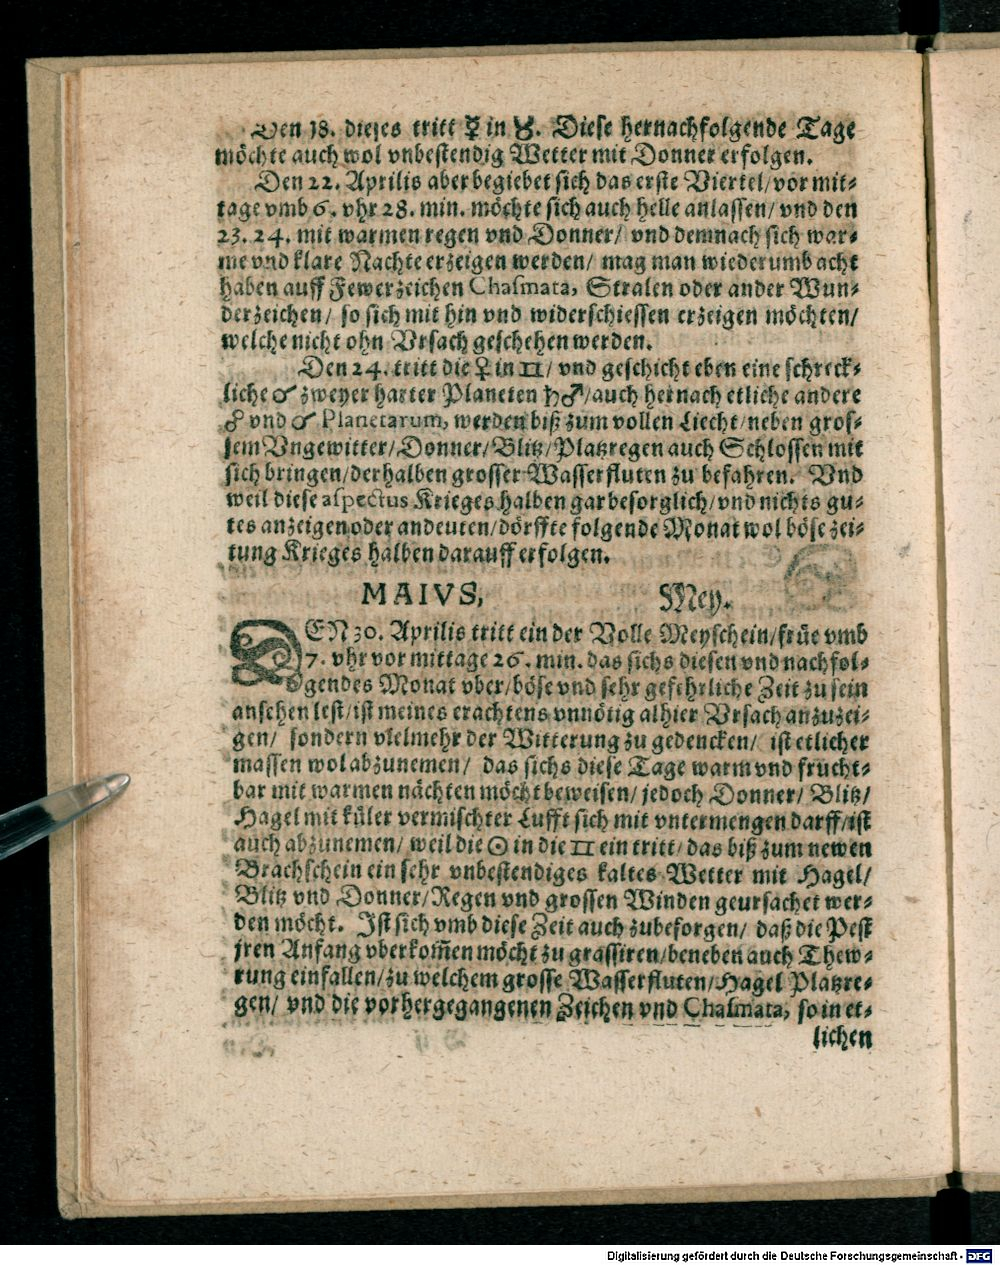 Den 18. dieses tritt ☿ in ♉. Diese hernachfolgende Tage
möchte auch wol vnbestendig Wetter mit Donner erfolgen.
Den 22. Aprilis aber begiebet sich das erste Viertel/ vor mit⸗
tage vmb 6. vhr 28. min. möchte sich auch helle anlassen/ vnd den
23. 24. mit warmen regen vnd Donner/ vnd demnach sich war⸗
me vnd klare Nachte erzeigen werden/ mag man wiederumb acht
haben auff Fewerzeichen Chasmata, Stralen oder ander Wun⸗
derzeichen/ so sich mit hin vnd widerschiessen erzeigen möchten/
welche nicht ohn Vrsach geschehen werden.
Den 24. tritt die ♀ in ♊/ vnd geschicht eben eine schreck⸗
liche ☌ zweyer harter Planeten ♄ ♂/ auch hernach etliche andere
☍ vnd ☌ Planetarum, werden biß zum vollen Liecht/ neben gros⸗
sem Vngewitter/ Donner/ Blitz/ Platzregen auch Schlossen mit
sich bringen/ derhalben grosser Wasserfluten zu befahren. Vnd
weil diese aspectus Krieges halben gar besorglich/ vnd nichts gu⸗
tes anzeigen oder andeuten/ dörffte folgende Monat wol böse zei⸗
tung Krieges halben darauff erfolgen.
MAIVS, Mey.
DEN 30. Aprilis tritt ein der Volle Meyschein/ früe vmb
7. vhr vor mittage 26. min. das sichs diesen vnd nachfol⸗
gendes Monat vber/ böse vnd sehr gefehrliche Zeit zu sein
ansehen lest/ ist meines erachtens vnnötig alhier Vrsach anzuzei⸗
gen/ sondern vielmehr der Witterung zu gedencken/ ist etlicher
massen wol abzunemen/ das sichs diese Tage warm vnd frucht⸗
bar mit warmen nächten möcht beweisen/ jedoch Donner/ Blitz/
Hagel mit küler vermischter Lufft sich mit vntermengen darff/ ist
auch abzunemen/ weil die ☉ in die ♊ ein tritt/ das biß zum newen
Brachschein ein sehr vnbestendiges kaltes Wetter mit Hagel/
Blitz vnd Donner/ Regen vnd grossen Winden geursachet wer⸗
den möcht. Ist sich vmb diese Zeit auch zubesorgen/ daß die Pest
jren Anfang vberkom̃en möcht zu grassiren/ beneben auch Thew⸗
rung einfallen/ zu welchem grosse Wasserfluten/ Hagel Platzre⸗
gen/ vnd die vorhergegangenen Zeichen vnd Chasmata, so in et⸗
lichen
Digitalisierung gefördert durch die Deutsche Forschungsgemeinschaft - DFG